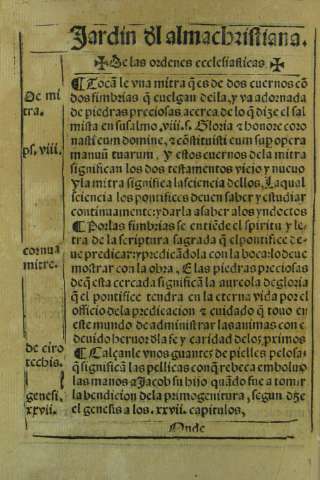 Jardin dl alma christiana.
✠ De las ordenes ecclesiasticas ✠
¶ Tocāle vna mitra q̄ es de dos cuernos cō
dos fimbrias q̄ cuelgan della, y va adornada
de piedras preciosas acerca de lo q̄ dize el sal
mista en su salmo .viij. s. Gloria & honore coro
nasti eum domine, & cōstituisti eum sup opera
manuū tuarum, y estos cuernos de la mitra
significan los dos testamentos viejo y nueuo
y la mitra significa la sciencia dellos, La qual
sciencia los pontifices deuen saber y estudiar
continuamente: y darla a saber a los yndoctos
¶ Por las fimbrias se entiēde el spiritu y le
tra de la scriptura sagrada q̄ el pontifice de-
ue predicar: y predicādola con la boca: lo deue
mostrar con la obra, E las piedras preciosas
de q̄ esta cercada significā la aureola de gloria
que el pontifice tendra en la eterna vida por el
officio de la predicacion & cuidado q̄ touo en
este mundo de administrar las animas con e
deuido heruor dla fe y caridad de los primos
¶ Calçanle vnos guantes de pielles pelosas
q̄ significā las pellicas con q̄ rebeca emboluio
las manos a Jacob su hijo quādo fue a tomar
la bendicion de la primogenitura, segun dize
el genesis a los .xxvij. capitulos,
Onde
De mi
tra.
ps. viij.
cornua
mitre.
de ciro
techis.
genesi.
xxvij.